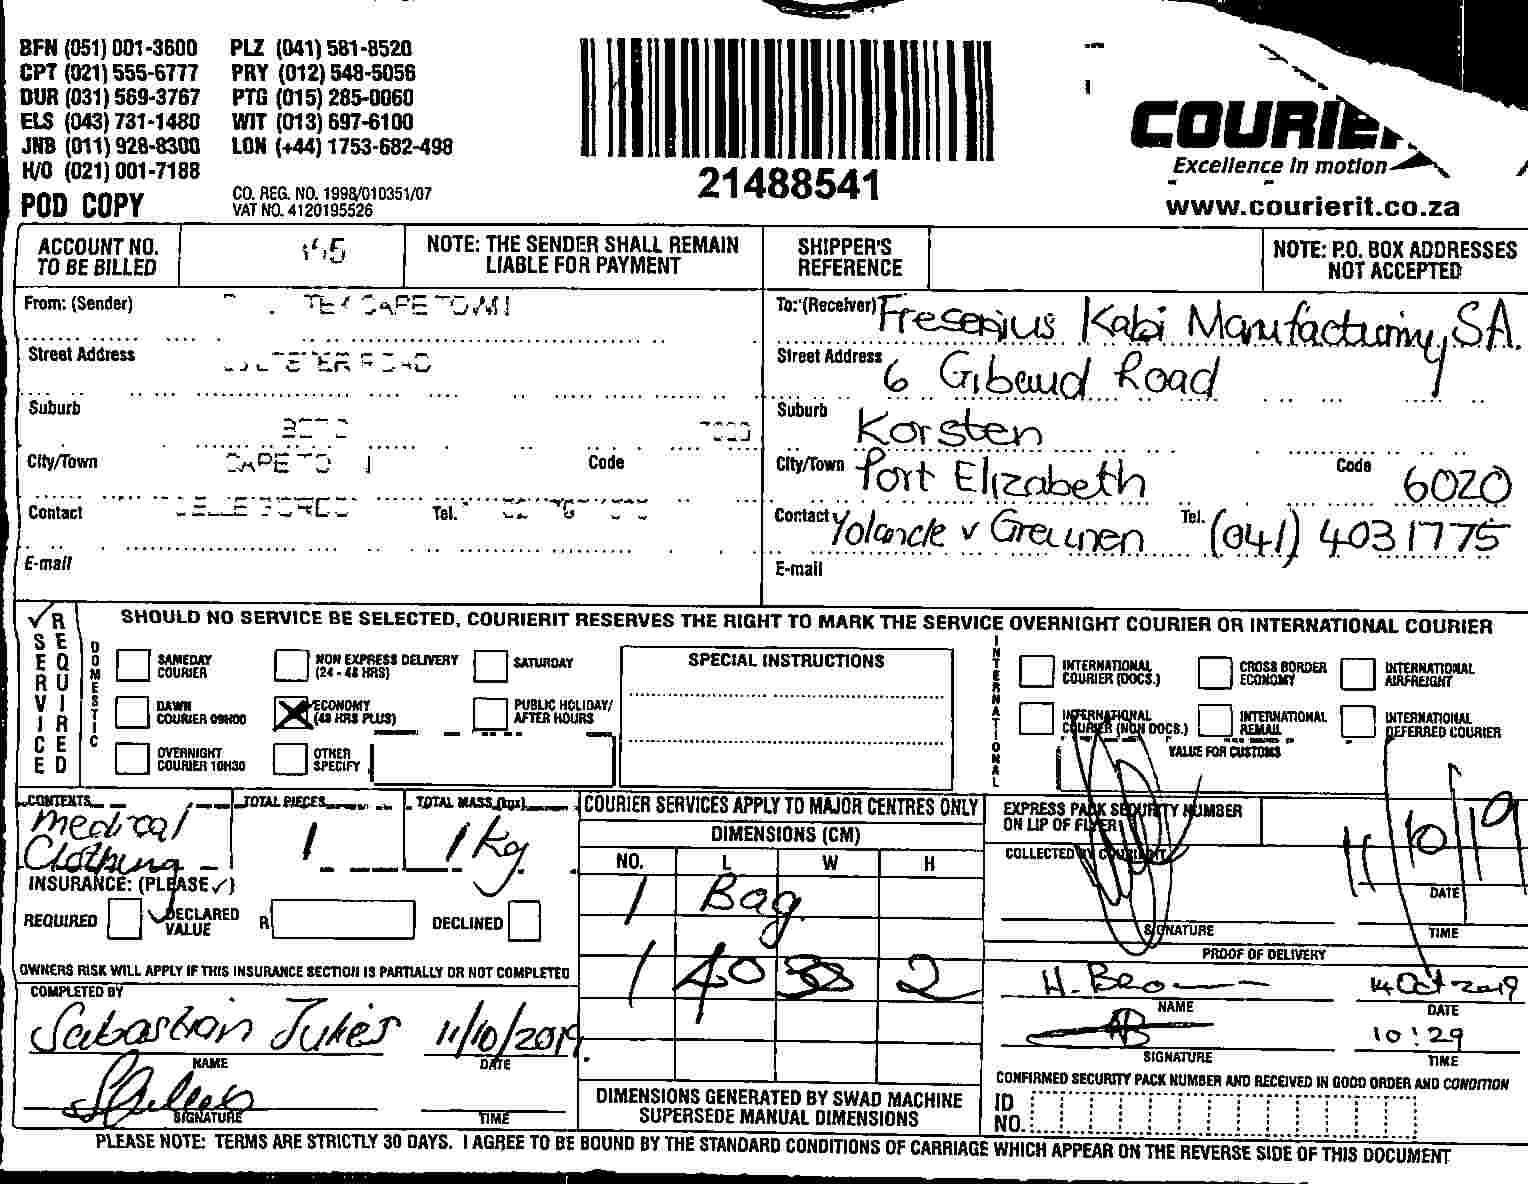 BFN (051) 001-3600 PLZ (041) 581-8520
CPT (021) 555-6777 PRY (012) 548-5056
DUR (031) 569-3767 PTG (015) 285-0060
ELS (043) 731-1480 WIT (013) 697-6100
JNB (011) 928-8300 LON (+44) 1753-682-498
H/O (021) 001-7188
POD COPY
CO. REG. NO. 1998/010351/07
VAT NO. 4120195526
21488541
COURIE
Excellence in motion
www.courierit.co.za
ACCOUNT NO.
TO BE BILLED
NOTE: THE SENDER SHALL REMAIN
LIABLE FOR PAYMENT
SHIPPER'S
REFERENCE
NOTE: P.O. BOX ADDRESSES
NOT ACCEPTED
From: (Sender) CAPE TOWN
Street Address ROAD
Suburb
City/Town CAPE TO Code
Contact Tel.
E-mail
To: (Receiver) Fresenius Kabi Manufacturing SA.
Street Address 6 Gibaud Road
Suburb Korsten
City/Town Port Elizabeth Code 6020
Contact Yolande v Greunen Tel. (041) 4031775
E-mail
SERVICE REQUIRED
SHOULD NO SERVICE BE SELECTED, COURIERIT RESERVES THE RIGHT TO MARK THE SERVICE OVERNIGHT COURIER OR INTERNATIONAL COURIER
DOMESTIC
SAMEDAY COURIER
NON EXPRESS DELIVERY (24 - 48 HRS)
SATURDAY
DAWN COURIER 09H00
ECONOMY (48 HRS PLUS)
PUBLIC HOLIDAY/ AFTER HOURS
OVERNIGHT COURIER 10H30
OTHER SPECIFY
SPECIAL INSTRUCTIONS
INTERNATIONAL
INTERNATIONAL COURIER (DOCS.)
CROSS BORDER ECONOMY
INTERNATIONAL AIRFREIGHT
INTERNATIONAL COURIER (NON DOCS.)
INTERNATIONAL REMAIL
INTERNATIONAL DEFERRED COURIER
VALUE FOR CUSTOMS
CONTENTS
Medical
Clothing
TOTAL PIECES
1
TOTAL MASS (kgs)
1 Kg
INSURANCE: (PLEASE ✓)
REQUIRED DECLARED VALUE R DECLINED
OWNERS RISK WILL APPLY IF THIS INSURANCE SECTION IS PARTIALLY OR NOT COMPLETED
COMPLETED BY
Sabastian Jukes 11/10/2019
NAME DATE
SIGNATURE TIME
COURIER SERVICES APPLY TO MAJOR CENTRES ONLY
DIMENSIONS (CM)
NO. L W H
1 Bag
1 40 38 2
DIMENSIONS GENERATED BY SWAD MACHINE
SUPERSEDE MANUAL DIMENSIONS
EXPRESS PACK SECURITY NUMBER
ON LIP OF FLYER
COLLECTED BY COURIERIT
11/10/19
DATE
SIGNATURE TIME
PROOF OF DELIVERY
H. Brown 14 Oct 2019
NAME DATE
10:29
SIGNATURE TIME
CONFIRMED SECURITY PACK NUMBER AND RECEIVED IN GOOD ORDER AND CONDITION
ID
NO.
PLEASE NOTE: TERMS ARE STRICTLY 30 DAYS. I AGREE TO BE BOUND BY THE STANDARD CONDITIONS OF CARRIAGE WHICH APPEAR ON THE REVERSE SIDE OF THIS DOCUMENT